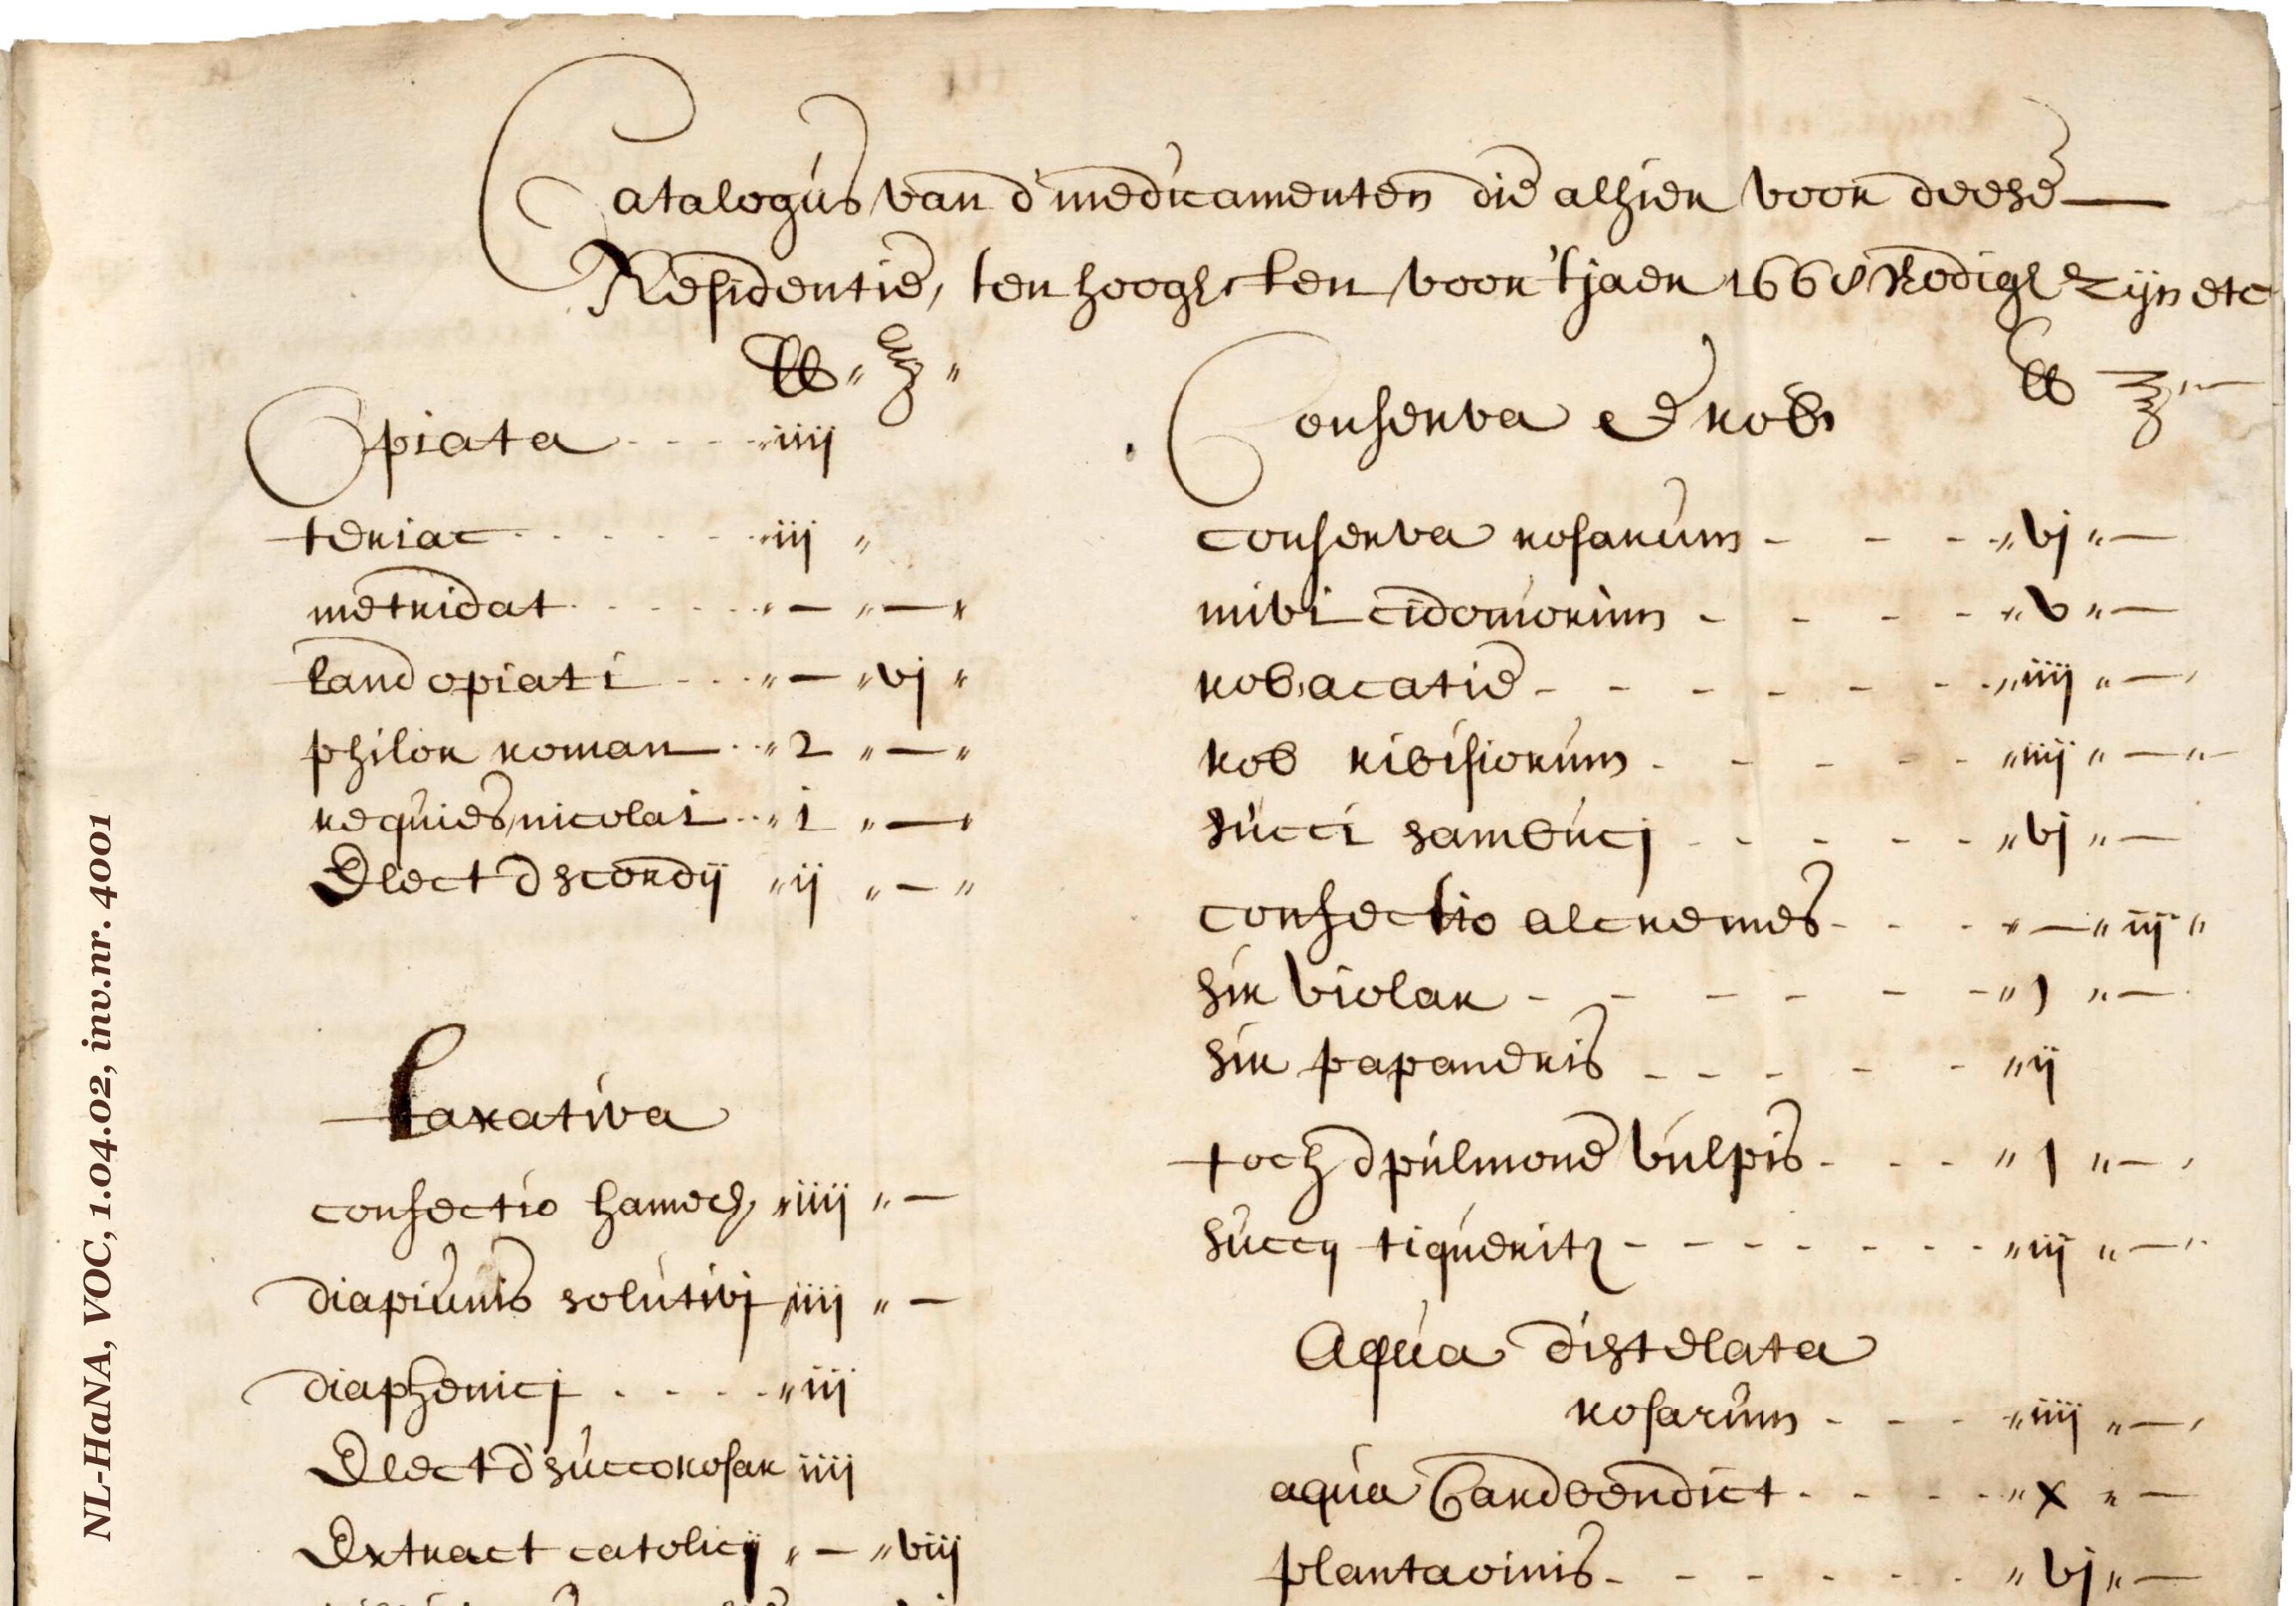 Catalogus van d' medicamenten die alhier voor deese
Residentie, ten hooghsten voor 't jaer 1668 Nodigh zijn etc
lb " ℥ "
Opiata - - - - " iiij
teriac - - - - - - " iij "
metridat - - - - - " — " — "
laud opiati - - - " — " vj "
philon roman - - " 2 " — "
requies nicolai - - " 1 " — "
Elect d scordij " ij " — "
Laxativa
confectio hamech " iiij " —
diaprunis solutivj " iiij " —
diaphenicj - - - - " iij
Elect d' succo rosar iiij
Extract catolicij " — " viij
Conserva & robs
lb ℥ " —
conserva rosarum - - - - " vj " —
mivi cidoniorum - - - - - " v " —
rob, acatie - - - - - - " iiij " —
rob ribisiorum - - - - - " iiij " — "
succi sambucj - - - - - " vj " —
confectio alcremes - - - " — " iij "
sir violar - - - - - - " j " —
sir papaueris - - - - - " ij
loch d pulmone vulpis - - - " j " —
succij liqueritz - - - - - - - " iij " —
Aqua distelata
rosarum - - - " iiij " —
aqua Cardbendict - - - - " x " —
plantaginis - - - - - - " vj " —
NL-HaNA, VOC, 1.04.02, inv.nr. 4001